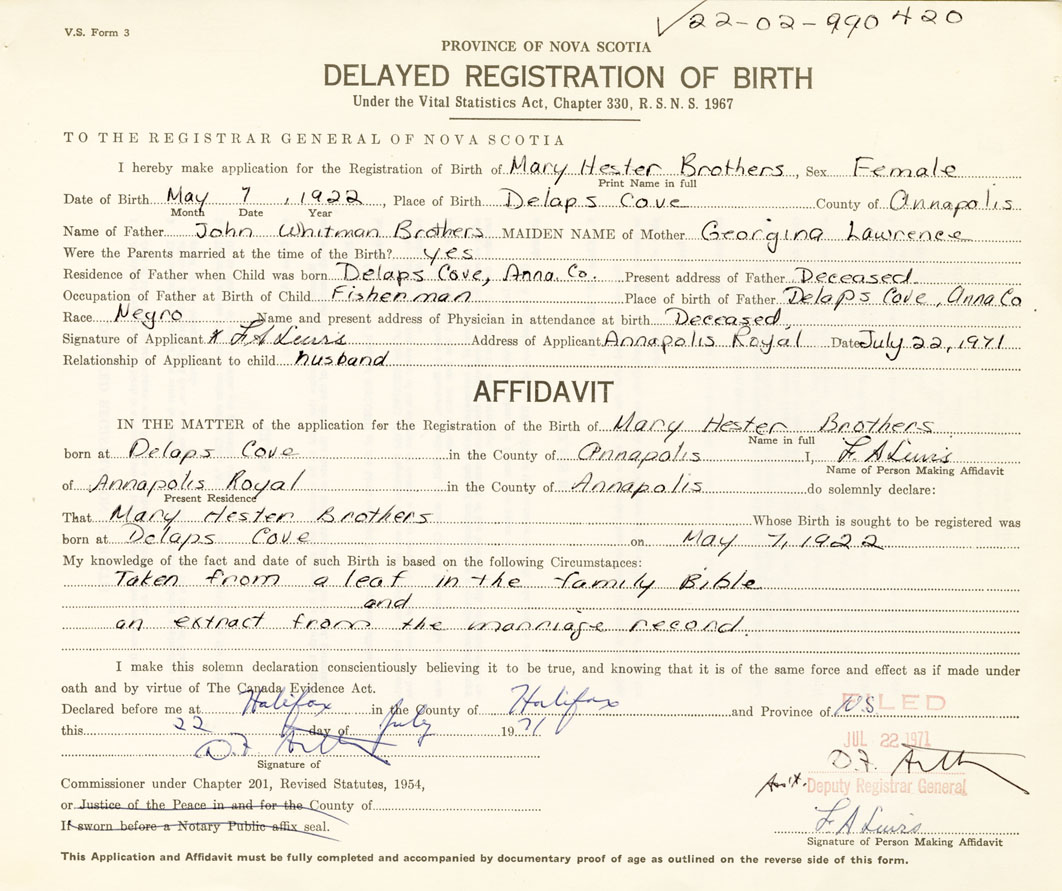 22-02-990420
V.S. Form 3
PROVINCE OF NOVA SCOTIA
DELAYED REGISTRATION OF BIRTH
Under the Vital Statistics Act, Chapter 330, R.S.N.S. 1967
TO THE REGISTRAR GENERAL OF NOVA SCOTIA
I hereby make application for the Registration of Birth of Mary Hester Brothers, Sex Female
Print Name in full
Date of Birth May 7, 1922, Place of Birth Delaps Cove County of Annapolis
Month Date Year
Name of Father John Whitman Brothers MAIDEN NAME of Mother Georgina Lawrence
Were the Parents married at the time of the Birth? yes
Residence of Father when Child was born Delaps Cove, Anna Co. Present address of Father Deceased
Occupation of Father at Birth of Child Fisherman Place of birth of Father Delaps Cove, Anna Co
Race Negro Name and present address of Physician in attendance at birth Deceased,
Signature of Applicant x F A Lewis Address of Applicant Annapolis Royal Date July 22, 1971
Relationship of Applicant to child husband
AFFIDAVIT
IN THE MATTER of the application for the Registration of the Birth of Mary Hester Brothers
Name in full
born at Delaps Cove in the County of Annapolis I, F A Lewis
Name of Person Making Affidavit
of Annapolis Royal in the County of Annapolis do solemnly declare:
Present Residence
That Mary Hester Brothers Whose Birth is sought to be registered was
born at Delaps Cove on May 7, 1922
My knowledge of the fact and date of such Birth is based on the following Circumstances:
Taken from a leaf in the family Bible
and
an extract from the marriage record.
I make this solemn declaration conscientiously believing it to be true, and knowing that it is of the same force and effect as if made under
oath and by virtue of The Canada Evidence Act.
Declared before me at Halifax in the County of Halifax and Province of N.S.
FILED
this 22 day of July 1971
JUL 22 1971
D.F. Arthur
D.F. Arthur
Signature of
Asst. Deputy Registrar General
Commissioner under Chapter 201, Revised Statutes, 1954,
or Justice of the Peace in and for the County of
If sworn before a Notary Public affix seal.
F A Lewis
Signature of Person Making Affidavit
This Application and Affidavit must be fully completed and accompanied by documentary proof of age as outlined on the reverse side of this form.